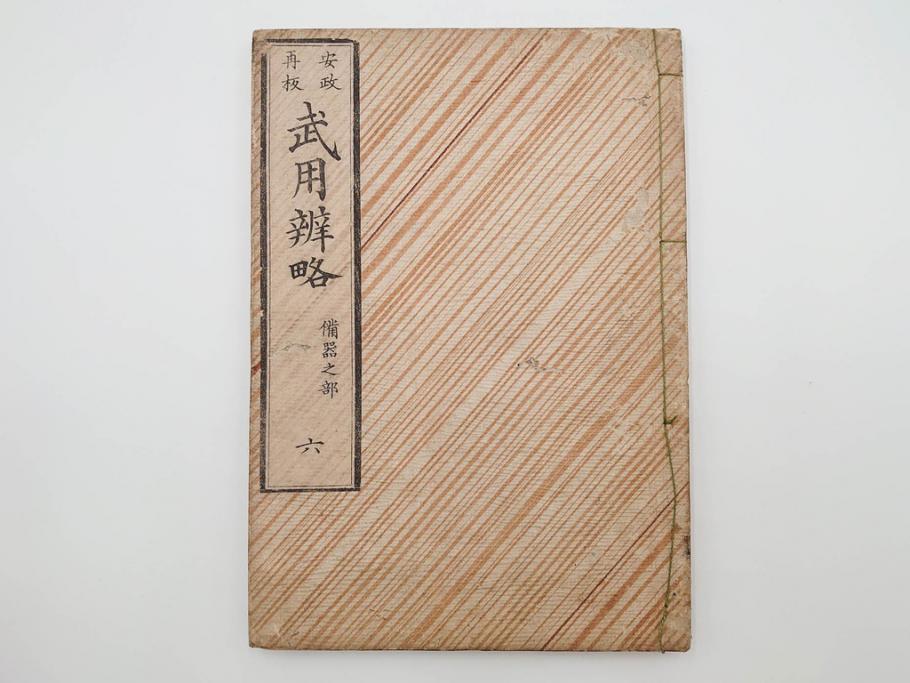 安政
再板
武用辨略
備器之部
六